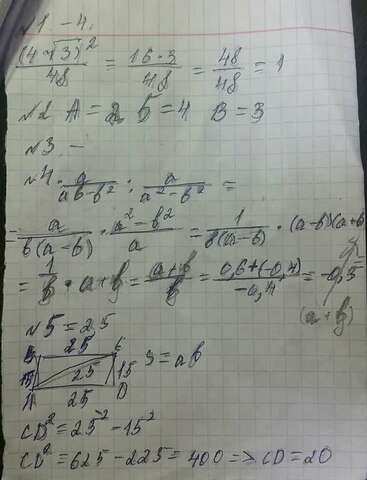 №1 - 4.
(4√3)² / 48 = 16·3 / 48 = 48 / 48 = 1
№2 А = 2 Б = 4 В = 3
№3 -
№4. a / ab-b² : a / a²-b² =
= a / b(a-b) · a²-b² / a = 1 / b(a-b) · (a-b)(a+b)
= 1 / b · a+b = a+b / b = 0,6+(-0,4) / -0,4 = -0,5
(a+b)
№5 = 25
25
15 25 15 S = ab
A 25 D
CD² = 25² - 15²
CD² = 625 - 225 = 400 => CD = 20